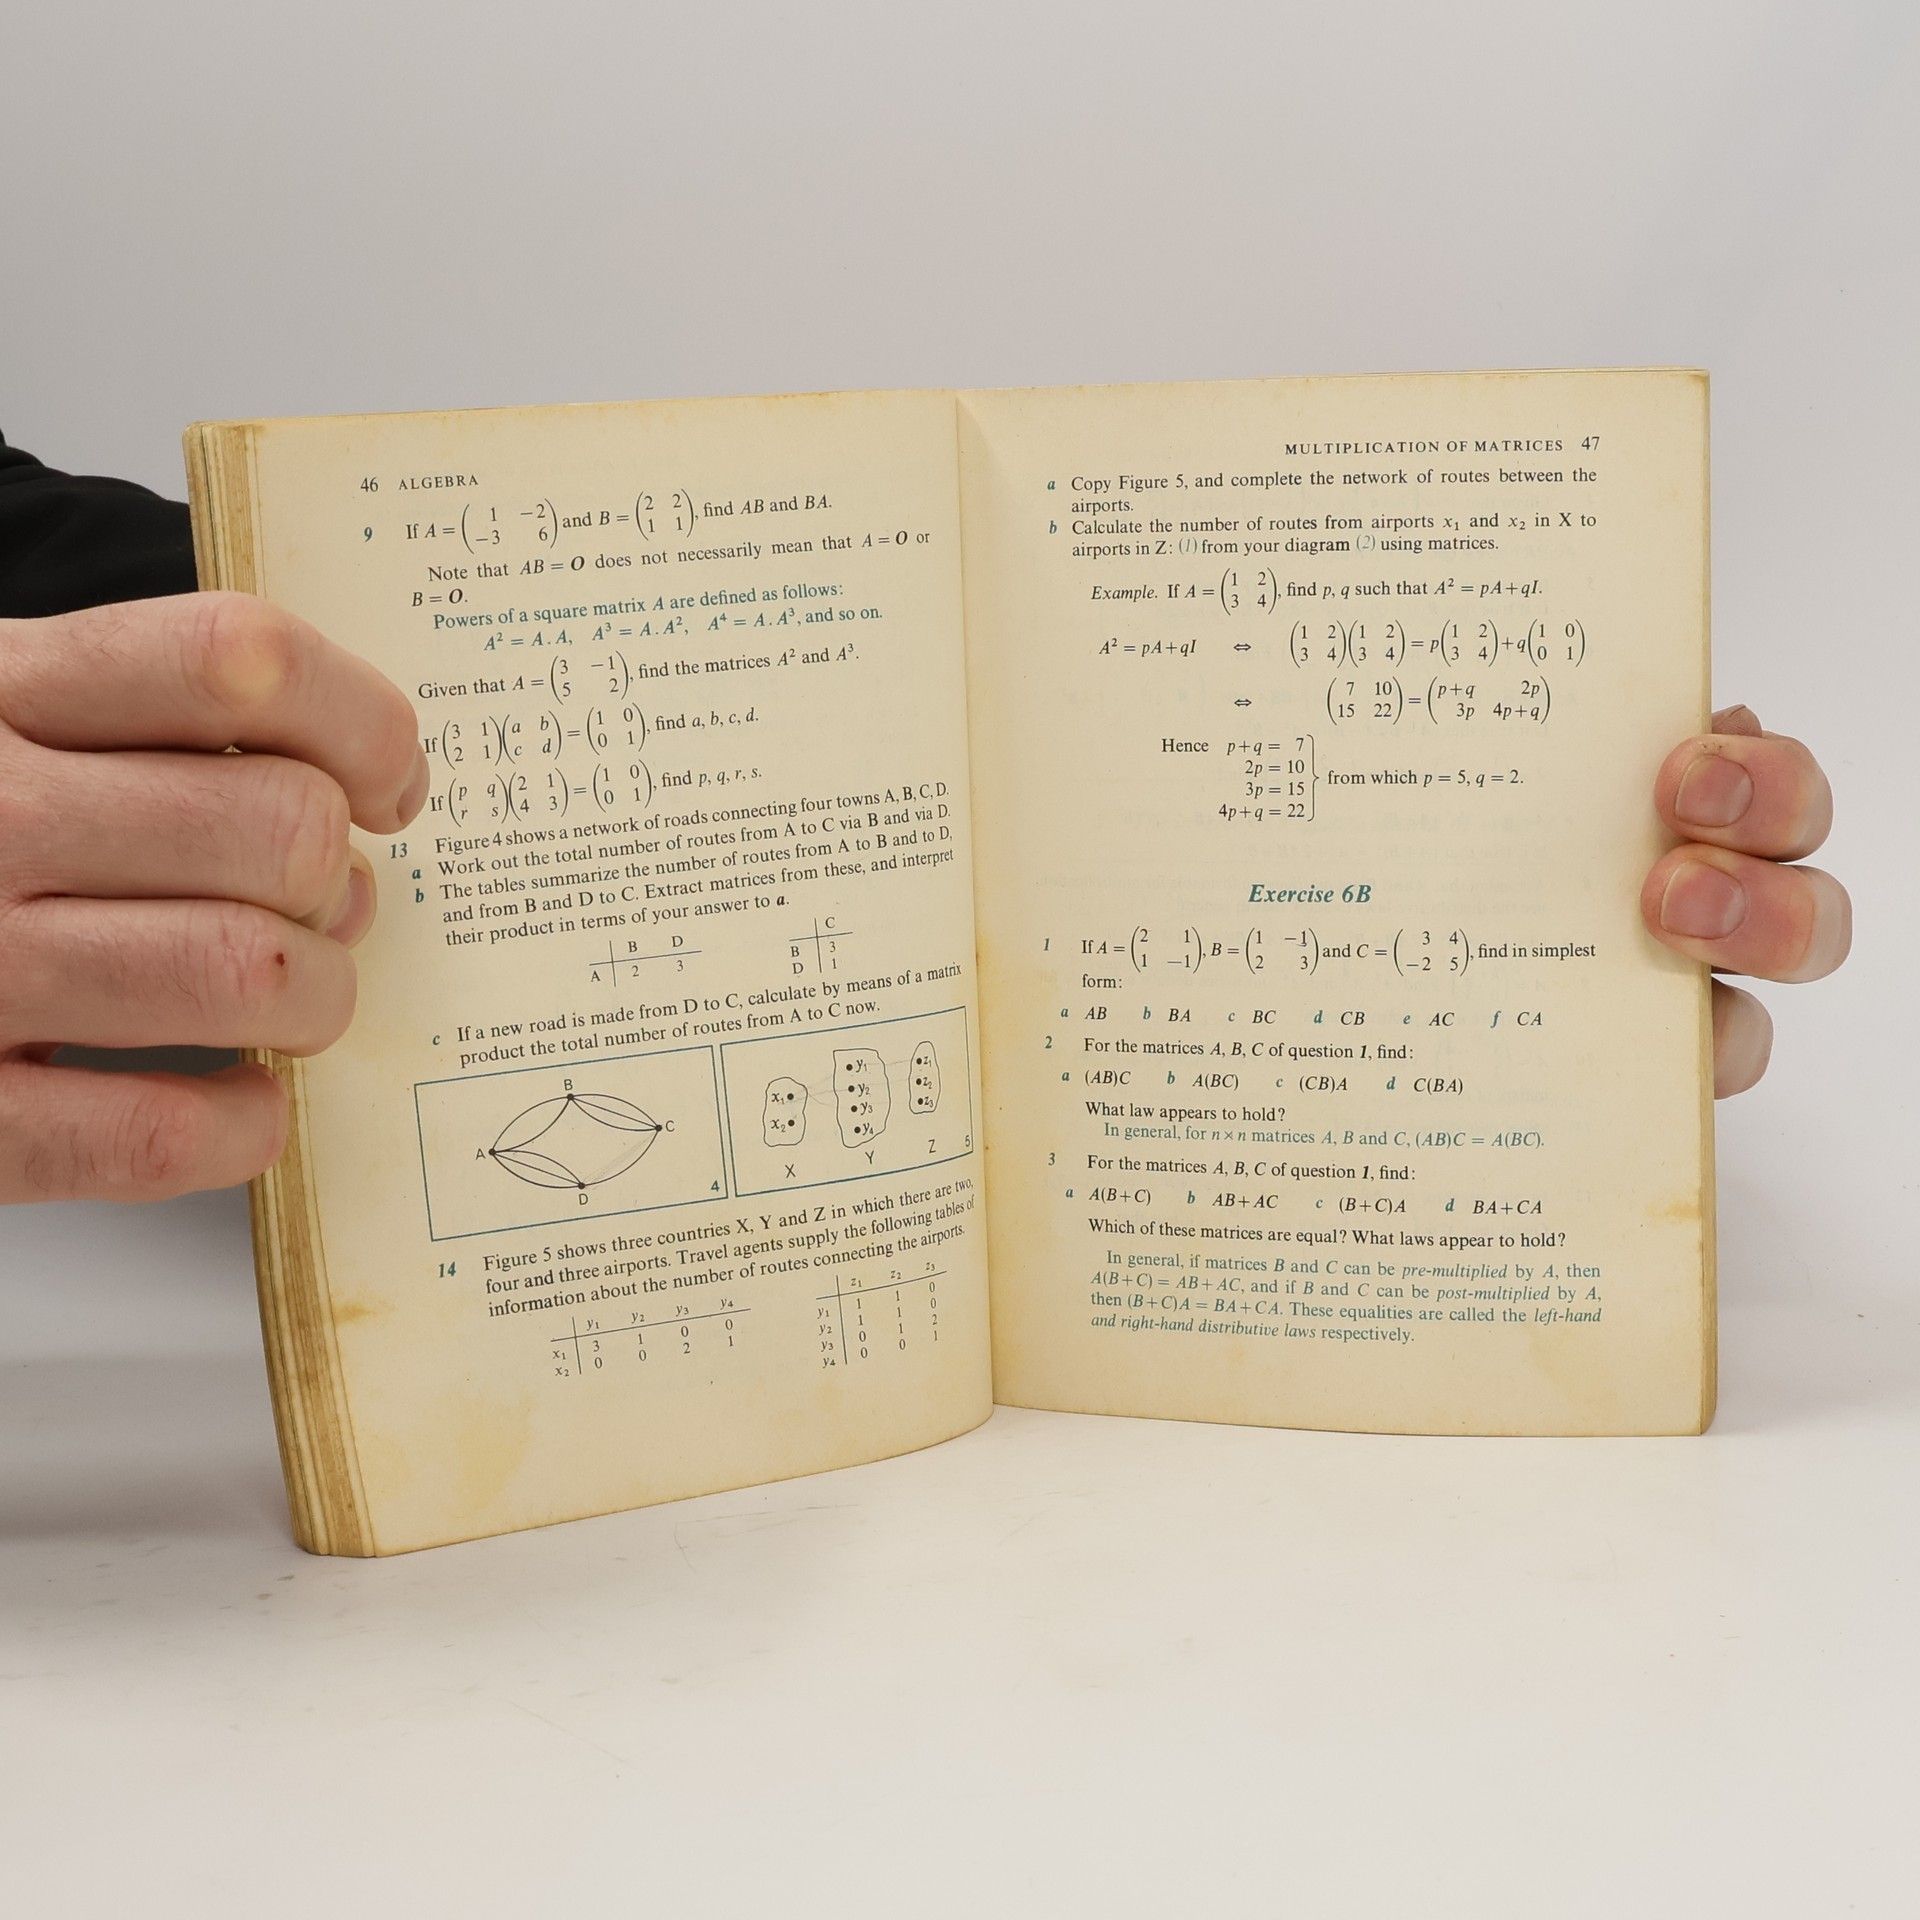 46 ALGEBRA
9 If A = ( 1 −2 ) and B = ( 2 2 ), find AB and BA.
( −3 6 ) ( 1 1 )
Note that AB = O does not necessarily mean that A = O or
B = O.
Powers of a square matrix A are defined as follows:
A² = A . A, A³ = A . A², A⁴ = A . A³, and so on.
Given that A = ( 3 −1 ), find the matrices A² and A³.
( 5 2 )
If ( 3 1 ) ( a b ) = ( 1 0 ), find a, b, c, d.
( 2 1 ) ( c d ) ( 0 1 )
If ( p q ) ( 2 1 ) = ( 1 0 ), find p, q, r, s.
( r s ) ( 4 3 ) ( 0 1 )
13 Figure 4 shows a network of roads connecting four towns A, B, C, D.
a Work out the total number of routes from A to C via B and via D.
b The tables summarize the number of routes from A to B and to D,
and from B and D to C. Extract matrices from these, and interpret
their product in terms of your answer to a.
B D
A 2 3
C
B 3
D 1
c If a new road is made from D to C, calculate by means of a matrix
product the total number of routes from A to C now.
B
A
C
D
4
x₁
x₂
X
y₁
y₂
y₃
y₄
Y
z₁
z₂
z₃
Z
5
14 Figure 5 shows three countries X, Y and Z in which there are two,
four and three airports. Travel agents supply the following tables of
information about the number of routes connecting the airports.
y₁ y₂ y₃ y₄
x₁ 3 1 0 0
x₂ 0 0 2 1
z₁ z₂ z₃
y₁ 1 1 0
y₂ 1 1 0
y₃ 0 1 2
y₄ 0 0 1
MULTIPLICATION OF MATRICES 47
a Copy Figure 5, and complete the network of routes between the
airports.
b Calculate the number of routes from airports x₁ and x₂ in X to
airports in Z: (1) from your diagram (2) using matrices.
Example. If A = ( 1 2 ), find p, q such that A² = pA+qI.
( 3 4 )
A² = pA+qI ⇔ ( 1 2 ) ( 1 2 ) = p ( 1 2 ) + q ( 1 0 )
( 3 4 ) ( 3 4 ) ( 3 4 ) ( 0 1 )
⇔ ( 7 10 ) = ( p+q 2p )
( 15 22 ) ( 3p 4p+q )
Hence p+q = 7
2p = 10
3p = 15
4p+q = 22
from which p = 5, q = 2.
Exercise 6B
1 If A = ( 2 1 ), B = ( 1 −1 ) and C = ( 3 4 ), find in simplest
( 1 −1 ) ( 2 3 ) ( −2 5 )
form:
a AB b BA c BC d CB e AC f CA
2 For the matrices A, B, C of question 1, find:
a (AB)C b A(BC) c (CB)A d C(BA)
What law appears to hold?
In general, for n × n matrices A, B and C, (AB)C = A(BC).
3 For the matrices A, B, C of question 1, find:
a A(B+C) b AB+AC c (B+C)A d BA+CA
Which of these matrices are equal? What laws appear to hold?
In general, if matrices B and C can be pre-multiplied by A, then
A(B+C) = AB+AC, and if B and C can be post-multiplied by A,
then (B+C)A = BA+CA. These equalities are called the left-hand
and right-hand distributive laws respectively.